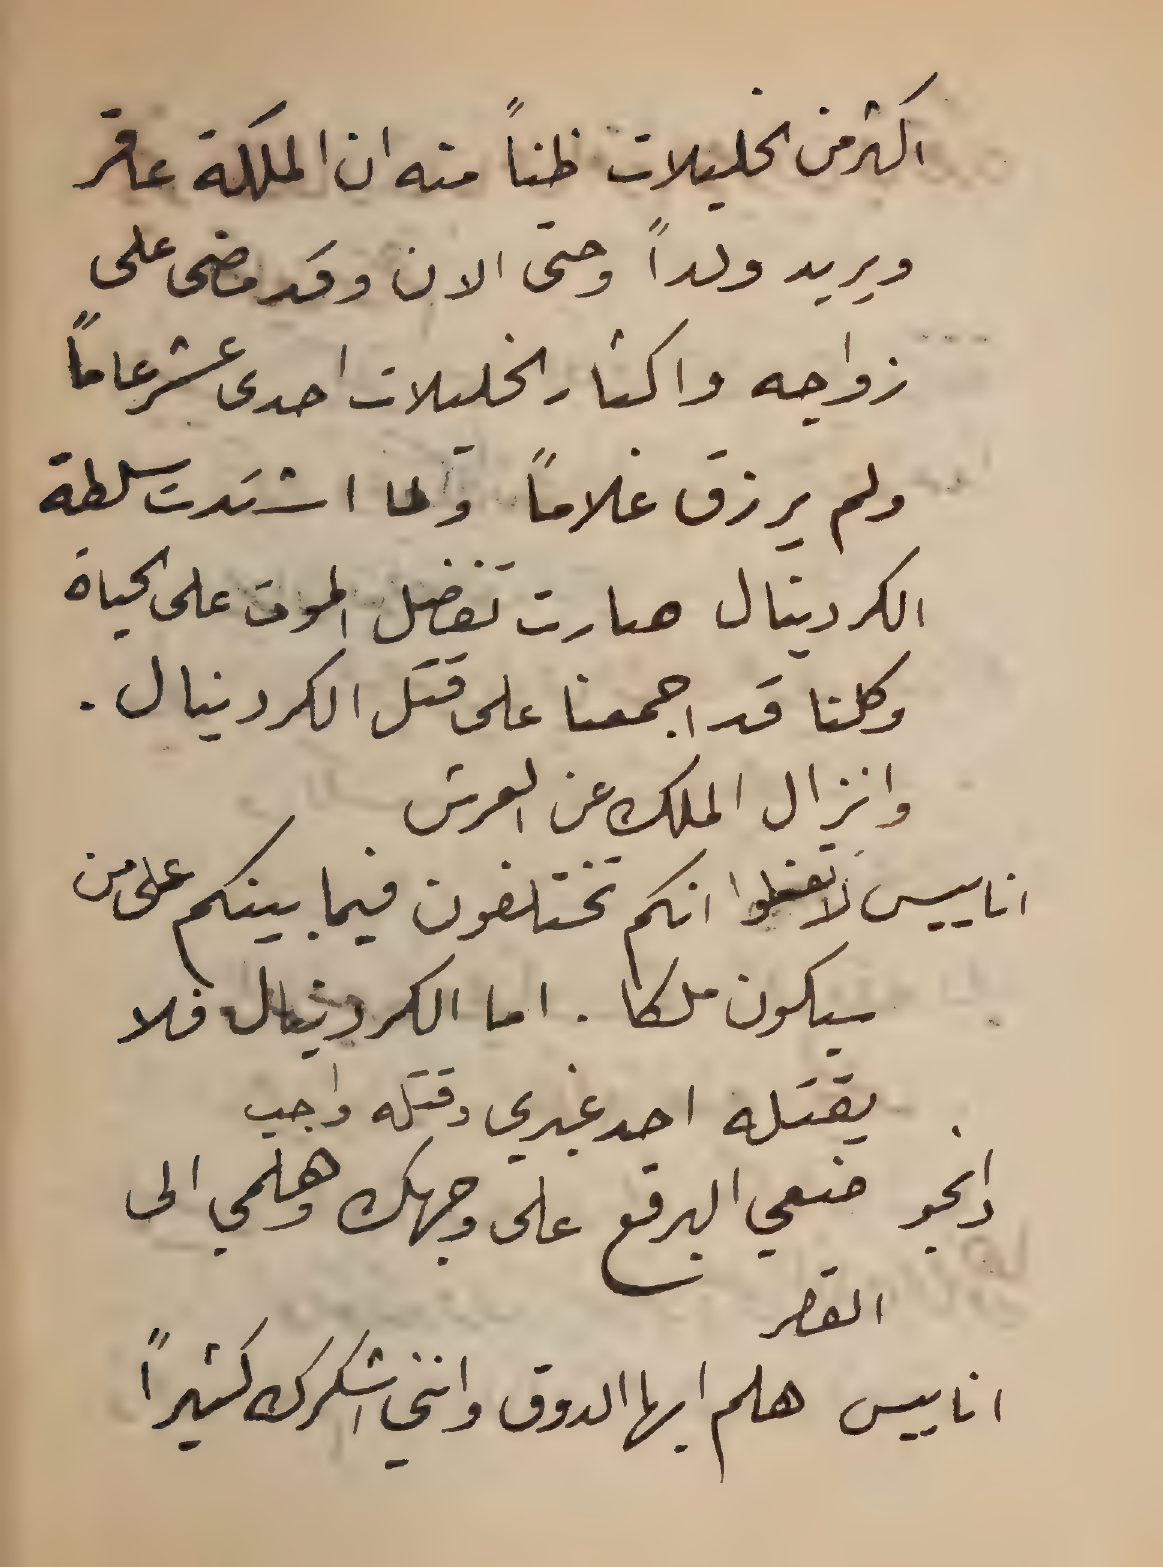 اكثر من الخليلات ظناً منه ان الملكة عاقر
ويريد ولداً وحتى الان وقد مضى على
زواجه واكثار الخليلات احدى عشر عاماً
ولم يرزق غلاماً ولما اشتدت سلطة
الكردينال صارت تفضل الموت على الحياة
وكلنا قد اجمعنا على قتل الكردينال .
وانزال الملك عن العرش
اناييس لا تفعلوا انكم تختلفون فيما بينكم على من
سيكون ملكا . اما الكردينال فلا
يقتله احد غيري وقتله واجب
دانجو ضعي البرقع على وجهك وهلمي الى
القصر
اناييس هلم ايها الدوق وانني اشكرك كثيراً